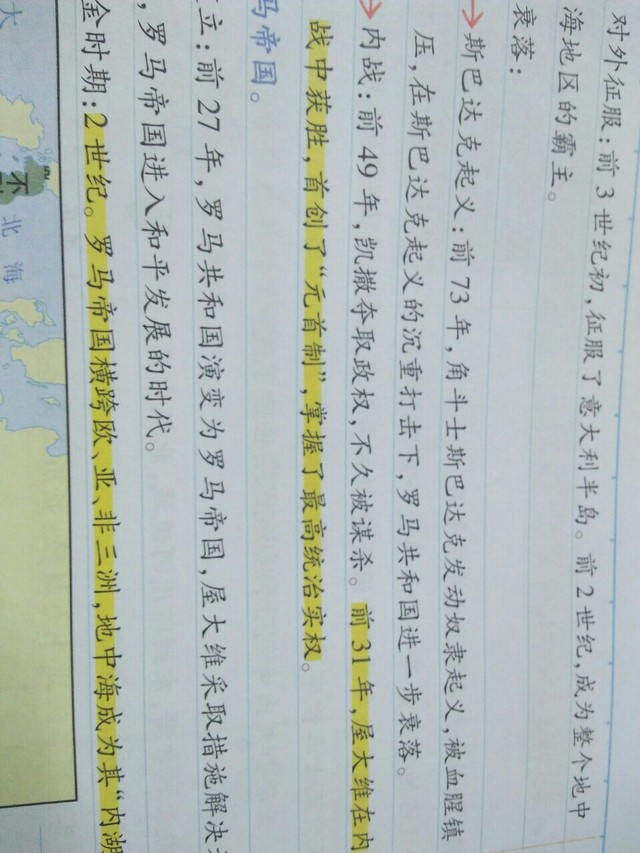 对外征服：前 3 世纪初，征服了意大利半岛。前 2 世纪，成为整个地中
海地区的霸主。
衰落：
→斯巴达克起义：前 73 年，角斗士斯巴达克发动奴隶起义，被血腥镇
压，在斯巴达克起义的沉重打击下，罗马共和国进一步衰落。
→内战：前 49 年，凯撒夺取政权，不久被谋杀。前 31 年，屋大维在内
战中获胜，首创了“元首制”，掌握了最高统治实权。
马帝国。
立：前 27 年，罗马共和国演变为罗马帝国，屋大维采取措施解决
，罗马帝国进入和平发展的时代。
金时期：2 世纪。罗马帝国横跨欧、亚、非三洲，地中海成为其“内湖
北海
大
不